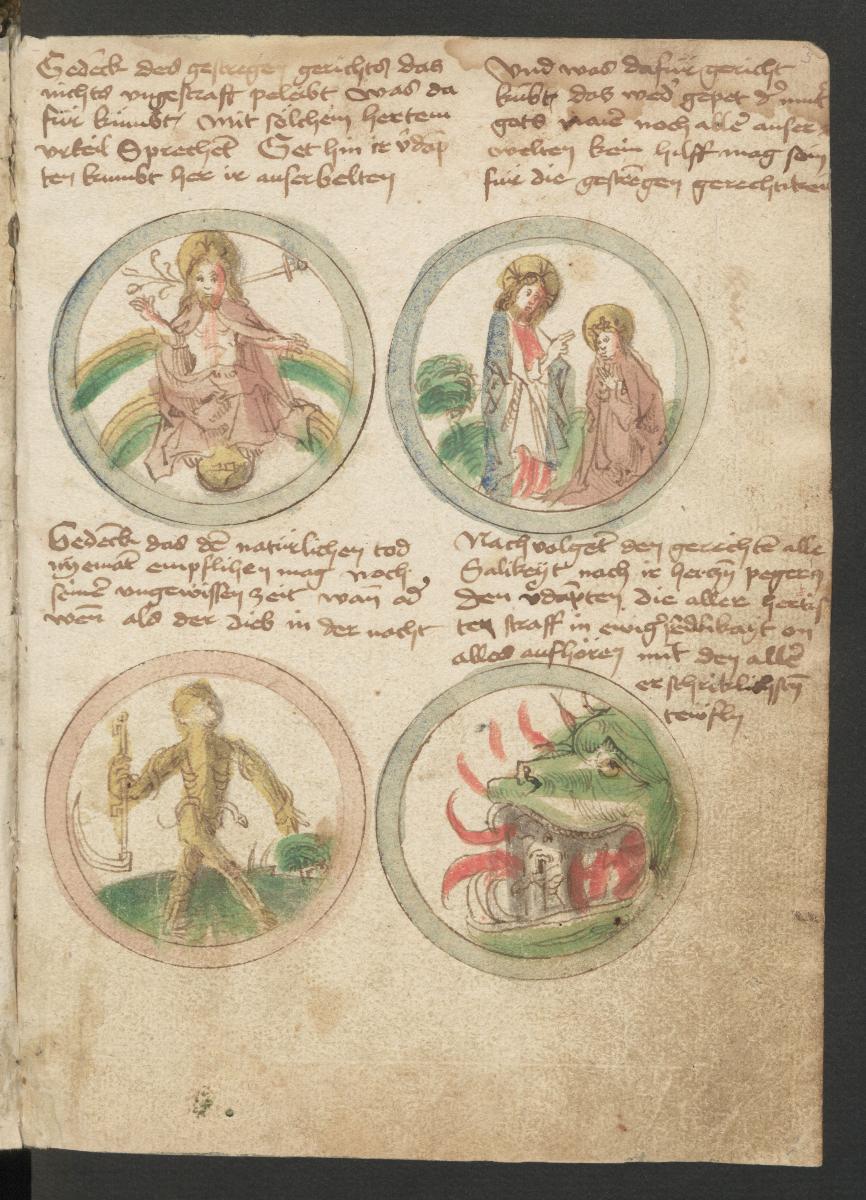 Gedenck des gestregen gerichts das
nichts ungestrafft peleibt was da
für kumbt mit solchem hertem
urteil Sprechent Get hin ir vdap
ten kumbt her ir auserbelten
Und was dafür gericht
kubt das wed' gepet d' mut'
gots marie noch aller auser
welten kein hilff mag sein
für die gestrengen gerechtikeit
Gedenck das dem natürlichen tod
nyemant empflihen mag noch
seiner ungewissen zeit wan od'
wen als der dieb in der nacht
Nachvolget den gerechten alle
Salikeyt nach ir hertzen pegeren
den vdapten die aller hertis
ten straff in ewig' on
alles aufhören mit den aller
erschriklichsten
tewfln